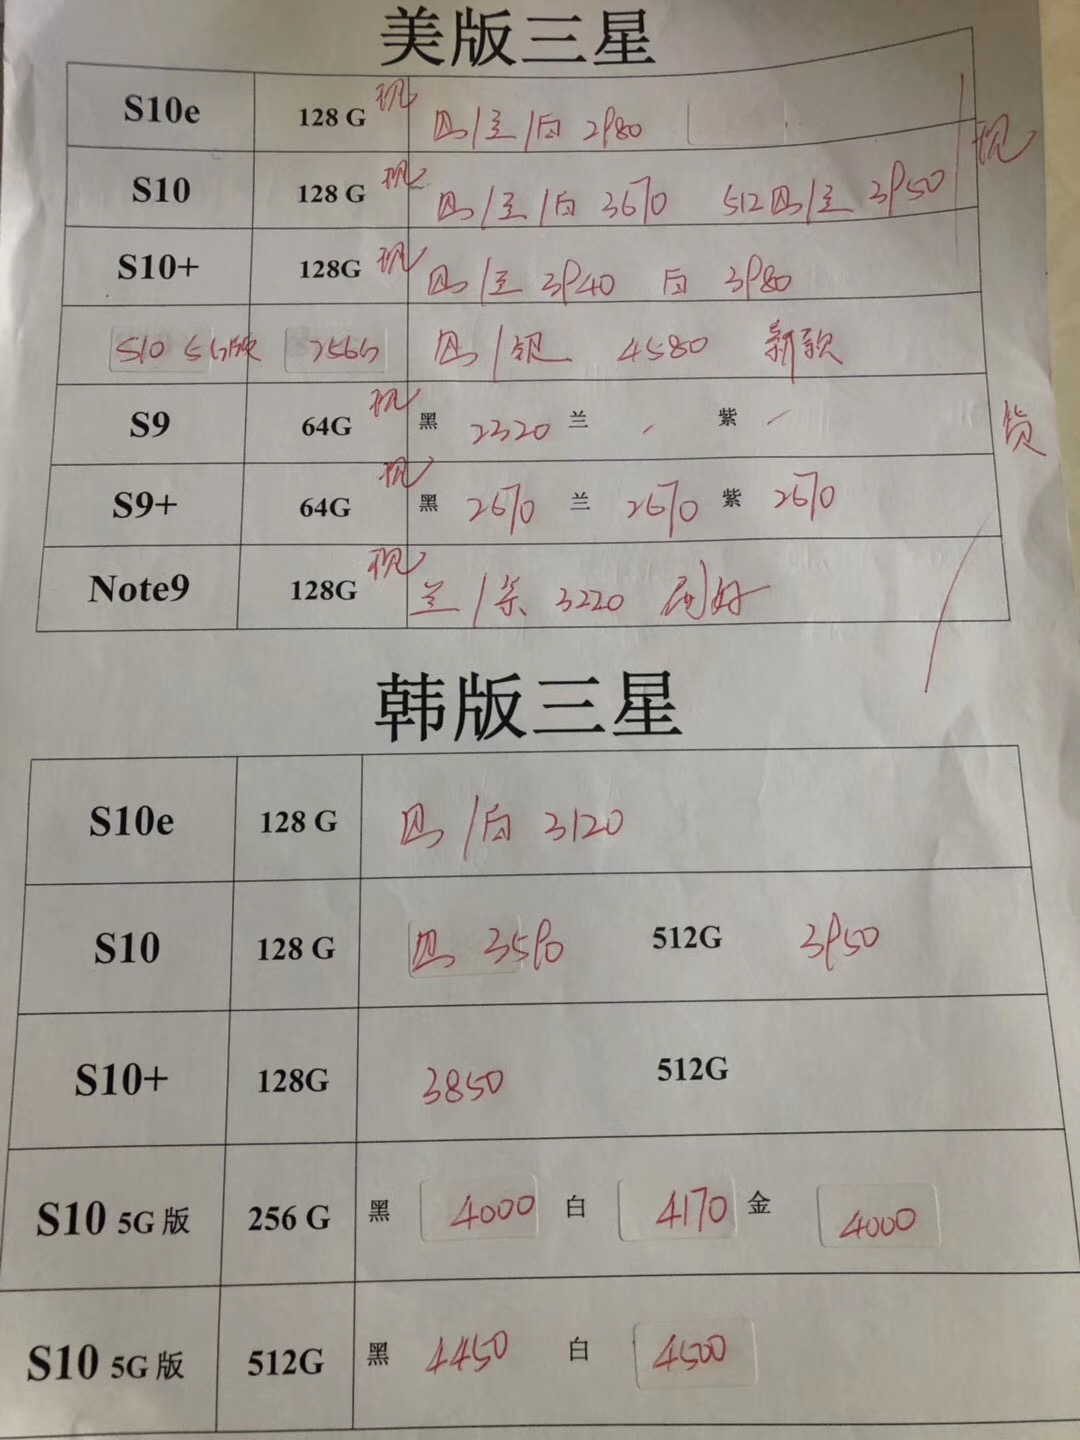 美版三星
S10e 128 G 现 黑/兰/白 2980
S10 128 G 现 黑/兰/白 3670 512黑/兰 3950 现
S10+ 128G 现 黑/兰 3940 白 3980
S10 5G版 256G 黑/银 4580 新款
S9 64G 现 黑 2320 兰 紫 货
S9+ 64G 现 黑 2670 兰 2670 紫 2670
Note9 128G 现 兰/紫 3220
韩版三星
S10e 128 G 黑/白 3120
S10 128 G 黑 3590 512G 3950
S10+ 128G 3850 512G
S10 5G 版 256 G 黑 4000 白 4170 金 4000
S10 5G 版 512G 黑 4450 白 4500